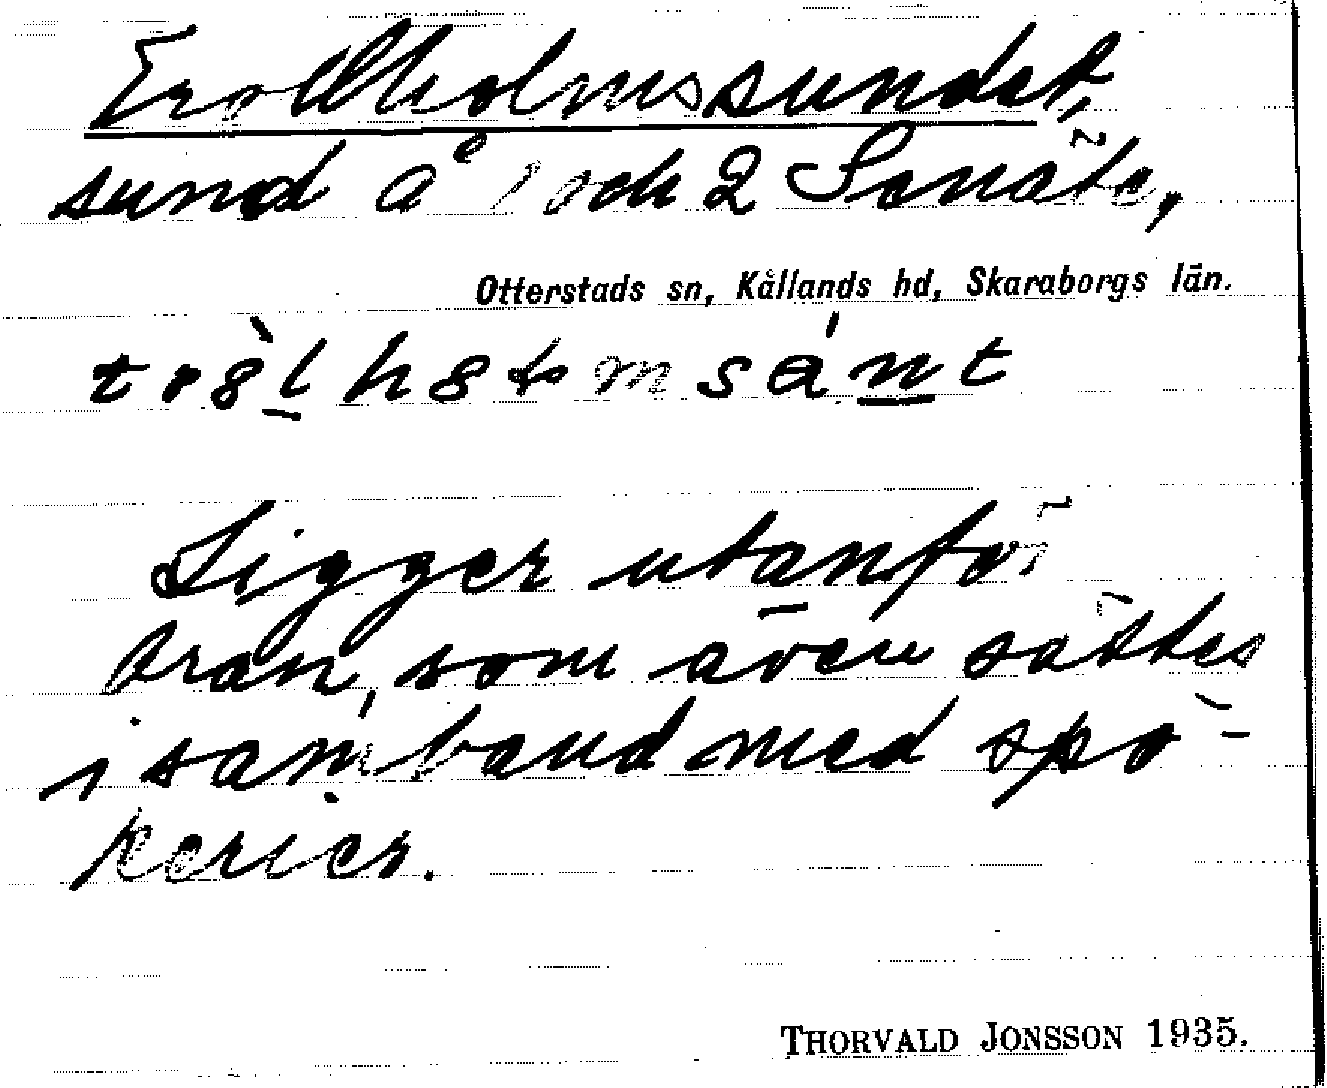 Trollholmssundet,
sund å 1 och 2 Senäte,
Otterstads sn, Kållands hd, Skaraborgs län.
Ligger utanför
bran, som även sättes
i samband med spö-
kerier.
THORVALD JONSSON 1935.